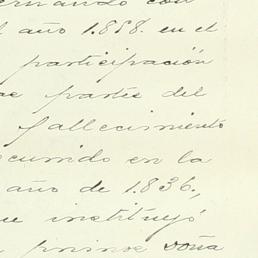 ernando con
l año 1.858. en el
participación
partes del
fallecimiento
ocurrido en la
año de 1.836,
ue instituyó
doña